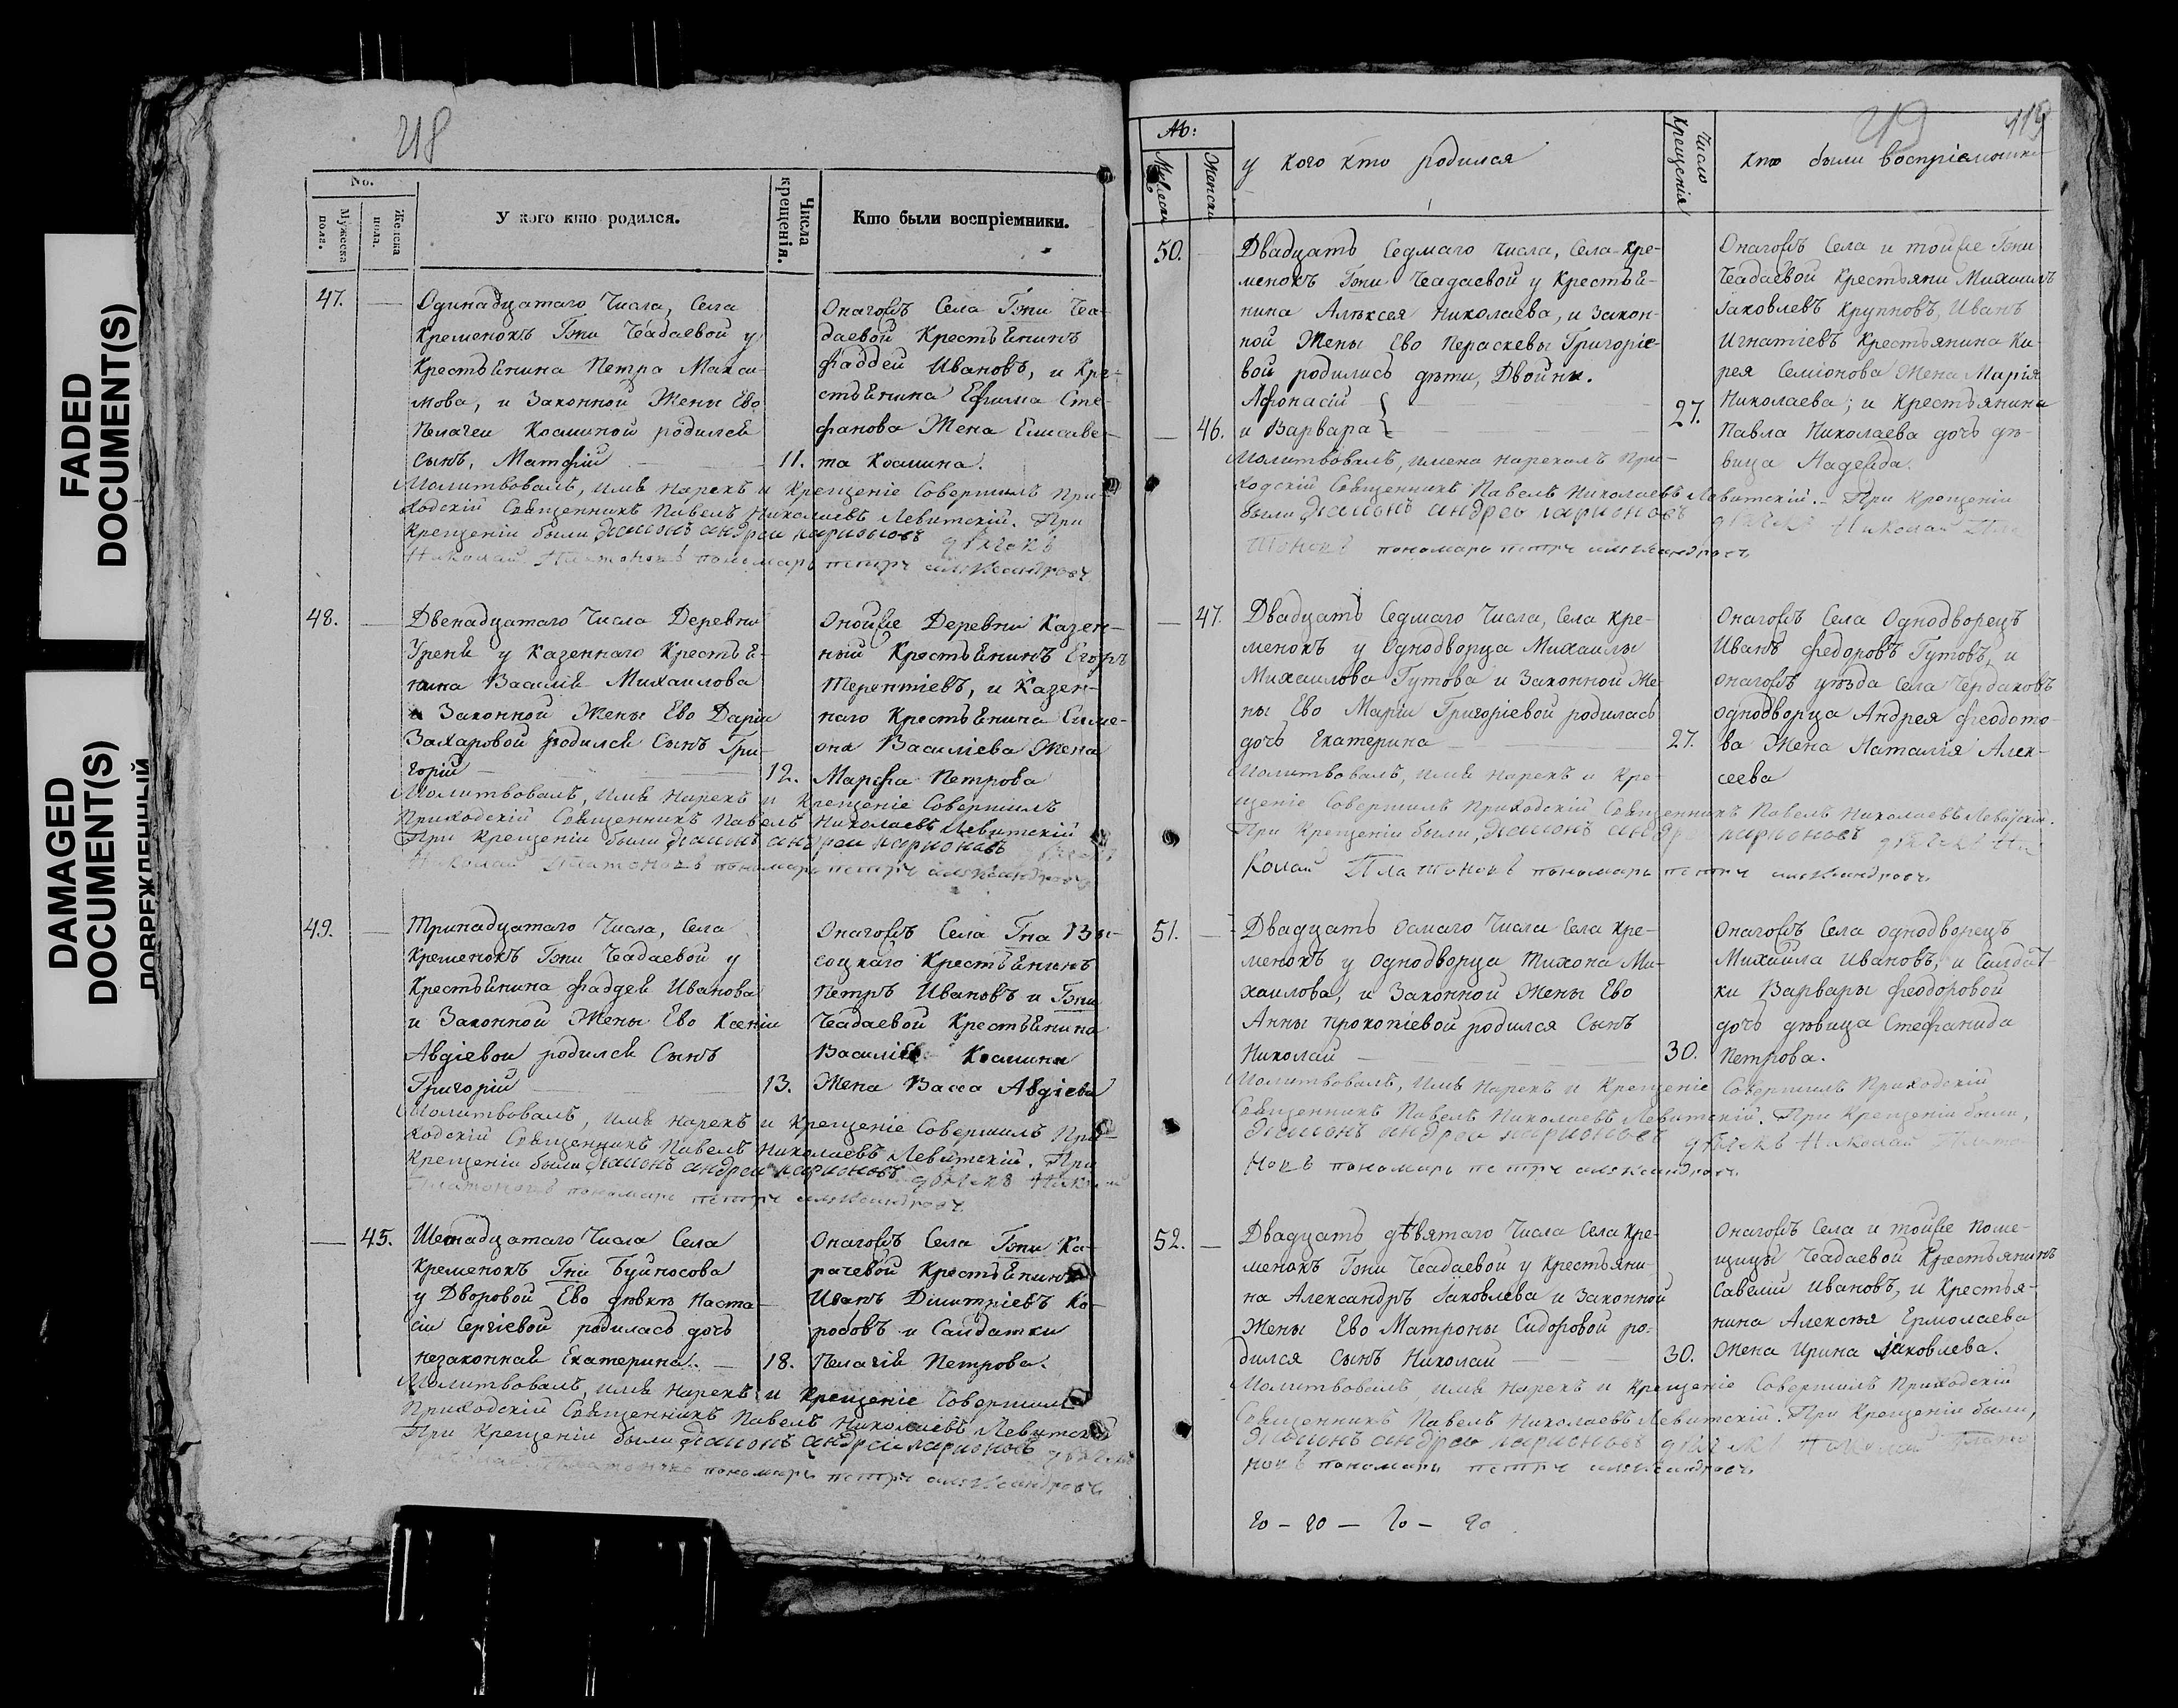 FADED
DOCUMENT(S)
DAMAGED
DOCUMENT(S)
ПОВРЕЖДЕННЫЙ
48
No.
Мужеска
пола.
Женска
пола.
У кого кто родился.
Числа
крещенія.
Кто были воспріемники.
47.
Одинадцатаго Числа, Села
Кременокъ Гжи Чеадаевой у
Крестьянина Петра Макси-
мова, и Законной Жены Ево
Пелагеи Косминой родился
сынъ, Матфій
11.
Онагожъ Села Гжи Чеа-
даевой Крестьянинъ
Фаддей Ивановъ, и Кре-
стьянина Ефима Сте-
фанова Жена Елисаве-
та Космина.
Молитвовалъ, имя нарекъ и Крещеніе Совершилъ При-
ходскій Священникъ Павелъ Николаевъ Левитскій. При
Крещеніи были диаконъ андреи ларионовъ дьячекъ
Николай Платоновъ пономарь петръ александровъ
48.
Двенадцатаго Числа Деревни
Урени у Казеннаго Крестья-
нина Василія Михаилова
и Законной Жены Ево Даріи
Захаровой родился Сынъ Гри-
горій
12.
Онойже Деревни Казен-
ный Крестьянинъ Егоръ
Терентіевъ, и Казен-
наго Крестьянина Симе-
она Василіева Жена
Марфа Петрова
Молитвовалъ, имя нарекъ и Крещеніе Совершилъ
Приходскій Священникъ Павелъ Николаевъ Левитскій
При Крещеніи были диаконъ андреи ларионовъ дьячекъ
Николай Платоновъ пономарь петръ александровъ
49.
Тринадцатаго Числа, Села
Кременокъ Гжи Чеадаевой у
Крестьянина Фаддея Иванова
и Законной Жены Ево Ксеніи
Авдіевой родился Сынъ
Григорій
13.
Онагожъ Села Гна Вы-
соцкаго Крестьянинъ
Петръ Ивановъ и Гжи
Чеадаевой Крестьянина
Василія Космина
Жена Васса Авдіева
Молитвовалъ, имя нарекъ и Крещеніе Совершилъ При-
ходскій Священникъ Павелъ Николаевъ Левитскій. При
Крещеніи были диаконъ андреи ларионовъ дьячекъ Николай
Платоновъ пономарь петръ александровъ
45.
Шестнадцатаго Числа Села
Кременокъ Гна Буйносова
у Дворовой Ево девки Наста-
сіи Сергіевой родилась дочь
незаконная Екатерина.
18.
Онагожъ Села Гжи Ка-
рачевой Крестьянинъ
Иванъ Димитріевъ Ко-
робовъ и Салдатки
Пелагія Петрова.
Молитвовалъ, имя нарекъ и Крещеніе Совершилъ
Приходскій Священникъ Павелъ Николаевъ Левитскій
При Крещеніи были диаконъ андреи ларионовъ дьячекъ
Николай Платоновъ пономарь петръ александровъ
49
119
№:
Мужеск
Женск
у кого кто родился
Число
крещенія
кто были воспріемники
50.
46.
Двадцать Седмаго числа, Села Кре-
менокъ Гжи Чеадаевой у Крестья-
нина Алексея Николаева, и Закон-
ной Жены Ево Пераскевы Григоріе-
вой родились дѣти, Двойни.
Афонасій
и Варвара
27.
Онагожъ Села и тойже Гжи
Чеадаевой Крестьяни Михаилъ
Іаковлевъ Крупновъ, Иванъ
Игнатіевъ Крестьянина Ки-
рея Семіонова Жена Марія
Николаева; и Крестьянина
Павла Николаева дочь дѣ-
вица Надежда.
Молитвовалъ, имена нарекалъ При-
ходскій Священникъ Павелъ Николаевъ Левитскій. При Крещеніи
были диаконъ андреи ларионовъ дьячекъ Николай Пла
тоновъ пономарь петръ александровъ
47.
Двадцать Седмаго Числа, Села Кре-
менокъ у Однодворца Михаилы
Михаилова Гутова и Законной Же-
ны Ево Маріи Григоріевой родилась
дочь Екатерина
27.
Онагожъ Села Однодворецъ
Иванъ Федоровъ Гутовъ, и
онагожъ уѣзда Села Чердаковъ
однодворца Андрея Феодото-
ва Жена Наталія Алек-
сеева
Молитвовалъ, имя нарекъ и Кре-
щеніе Совершилъ Приходскій Священникъ Павелъ Николаевъ Левитскій.
При Крещеніи были, диаконъ андреи ларионовъ дьячекъ Ни
колай Платоновъ пономарь петръ александровъ
51.
Двадцать осмаго Числа Села Кре-
менокъ у Однодворца Тихона Ми-
хаилова, и Законной Жены Ево
Анны Прокопіевой родился Сынъ
Николай
30.
Онагожъ Села однодворецъ
Михаила Ивановъ, и Салдат
ки Варвары Феодоровой
дочь дѣвица Стефанида
Петрова.
Молитвовалъ, имя нарекъ и Крещеніе Совершилъ Приходскій
Священникъ Павелъ Николаевъ Левитскій. При Крещеніи были,
диаконъ андреи ларионовъ дьячекъ Николай Плато
новъ пономарь петръ александровъ
52.
Двадцать дѣвятаго Числа Села Кре-
менокъ Гжи Чеадаевой у Крестьяни-
на Александръ Іаковлева и Законной
Жены Ево Матроны Сидоровой ро-
дился сынъ Николай
30.
Онагожъ Села и тойже поме-
щицы Чеадаевой Крестьянинъ
Савелій Ивановъ, и Крестья-
нина Алексѣя Ермолаева
Жена Ирина Іаковлева.
Молитвовалъ, имя нарекъ и Крещеніе Совершилъ Приходскій
Священникъ Павелъ Николаевъ Левитскій. При Крещеніи были,
диаконъ андреи ларионовъ дьячекъ Николай Плато
новъ пономарь петръ александровъ